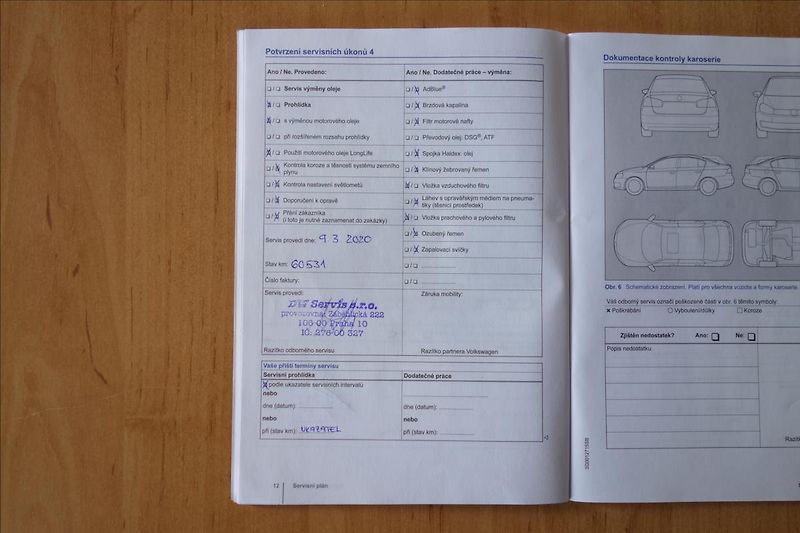 Potvrzení servisních úkonů 4
Ano / Ne. Provedeno:
Servis výměny oleje
Prohlídka
s výměnou motorového oleje
při rozšířeném rozsahu prohlídky
Použití motorového oleje LongLife
Kontrola koroze a těsnosti systému zemního
plynu
Kontrola nastavení světlometů
Doporučení k opravě
Přání zákazníka
(i toto je nutné zaznamenat do zakázky)
Servis provedl dne: 9 3 2020
Stav km: 60531
Číslo faktury:
Servis provedl:
DW Servis s.r.o.
provozovna: Záběhlická 222
106 00 Praha 10
IČ: 276 00 327
Razítko odborného servisu
Ano / Ne. Dodatečné práce – výměna:
AdBlue®
Brzdová kapalina
Filtr motorové nafty
Převodový olej: DSG®, ATF
Spojka Haldex: olej
Klínový žebrovaný řemen
Vložka vzduchového filtru
Láhev s opravářským médiem na pneuma-
tiky (těsnicí prostředek)
Vložka prachového a pylového filtru
Ozubený řemen
Zapalovací svíčky
Záruka mobility:
Razítko partnera Volkswagen
Vaše příští termíny servisu
Servisní prohlídka
podle ukazatele servisních intervalů
nebo
dne (datum):
nebo
při (stav km): UKAZATEL
Dodatečné práce
dne (datum):
nebo
při (stav km):
12 Servisní plán
Dokumentace kontroly karoserie
Obr. 6 Schematické zobrazení. Platí pro všechna vozidla a formy karoserie.
Váš odborný servis označí poškozené části v obr. 6 těmito symboly:
Poškrábání Vyboulení/důlky Koroze
Zjištěn nedostatek? Ano: Ne:
Popis nedostatku